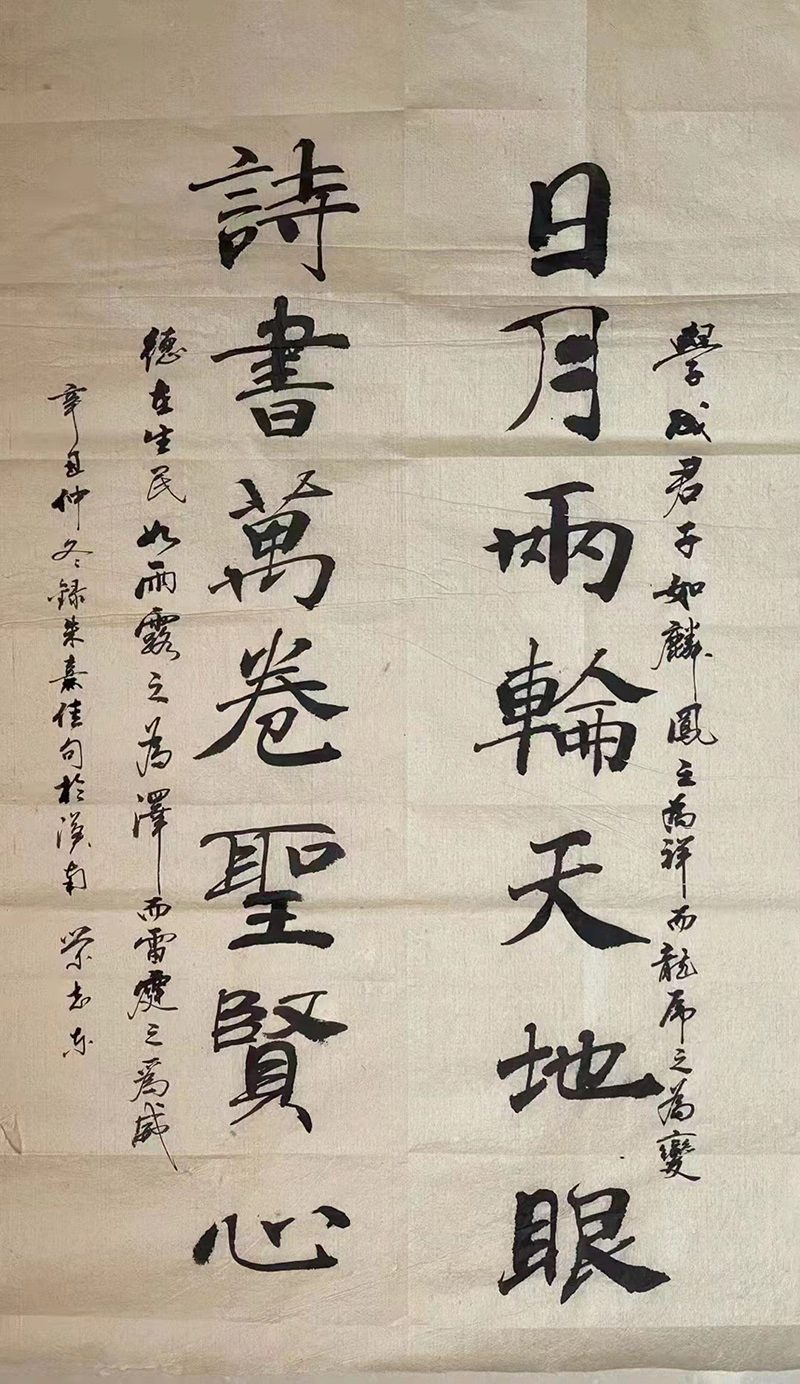 學成君子如麟鳳之為祥而龍虎之為變
日月兩輪天地眼
詩書萬卷聖賢心
德在生民如雨露之為澤而雷霆之為威
辛丑仲冬錄朱熹佳句於漢南 榮志東